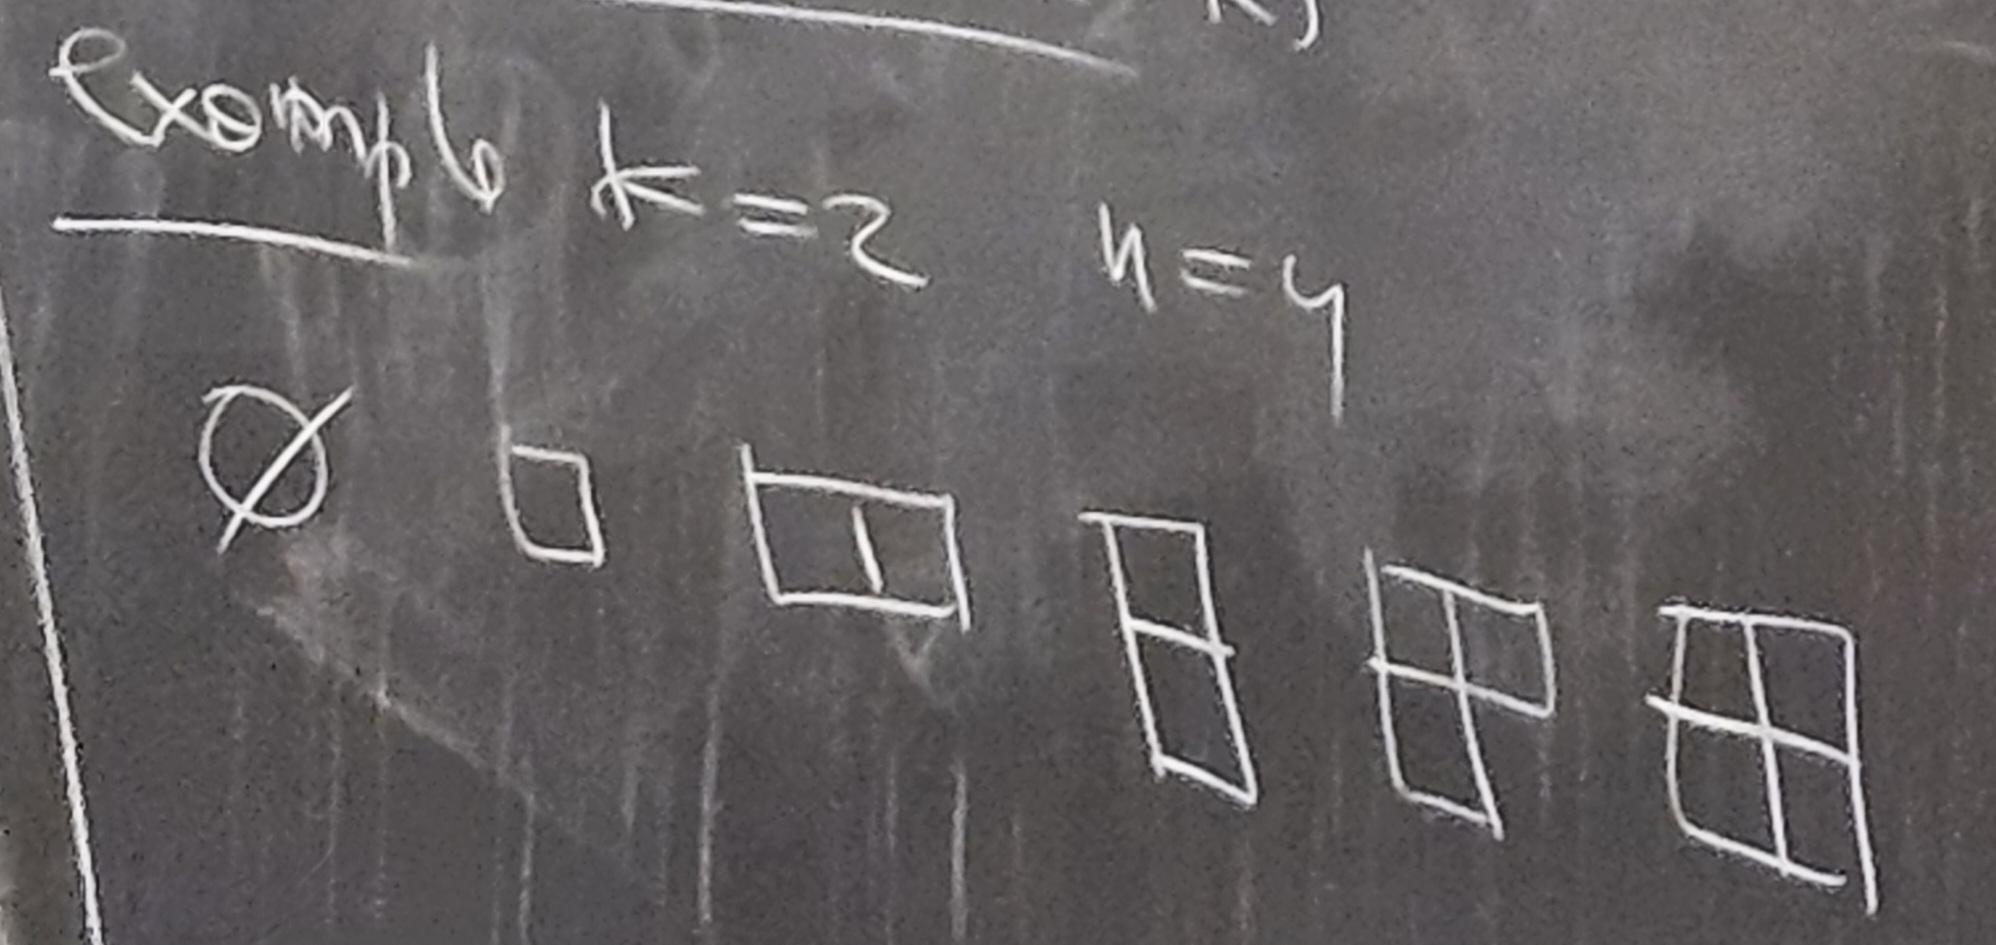 example k=2 n=4
∅